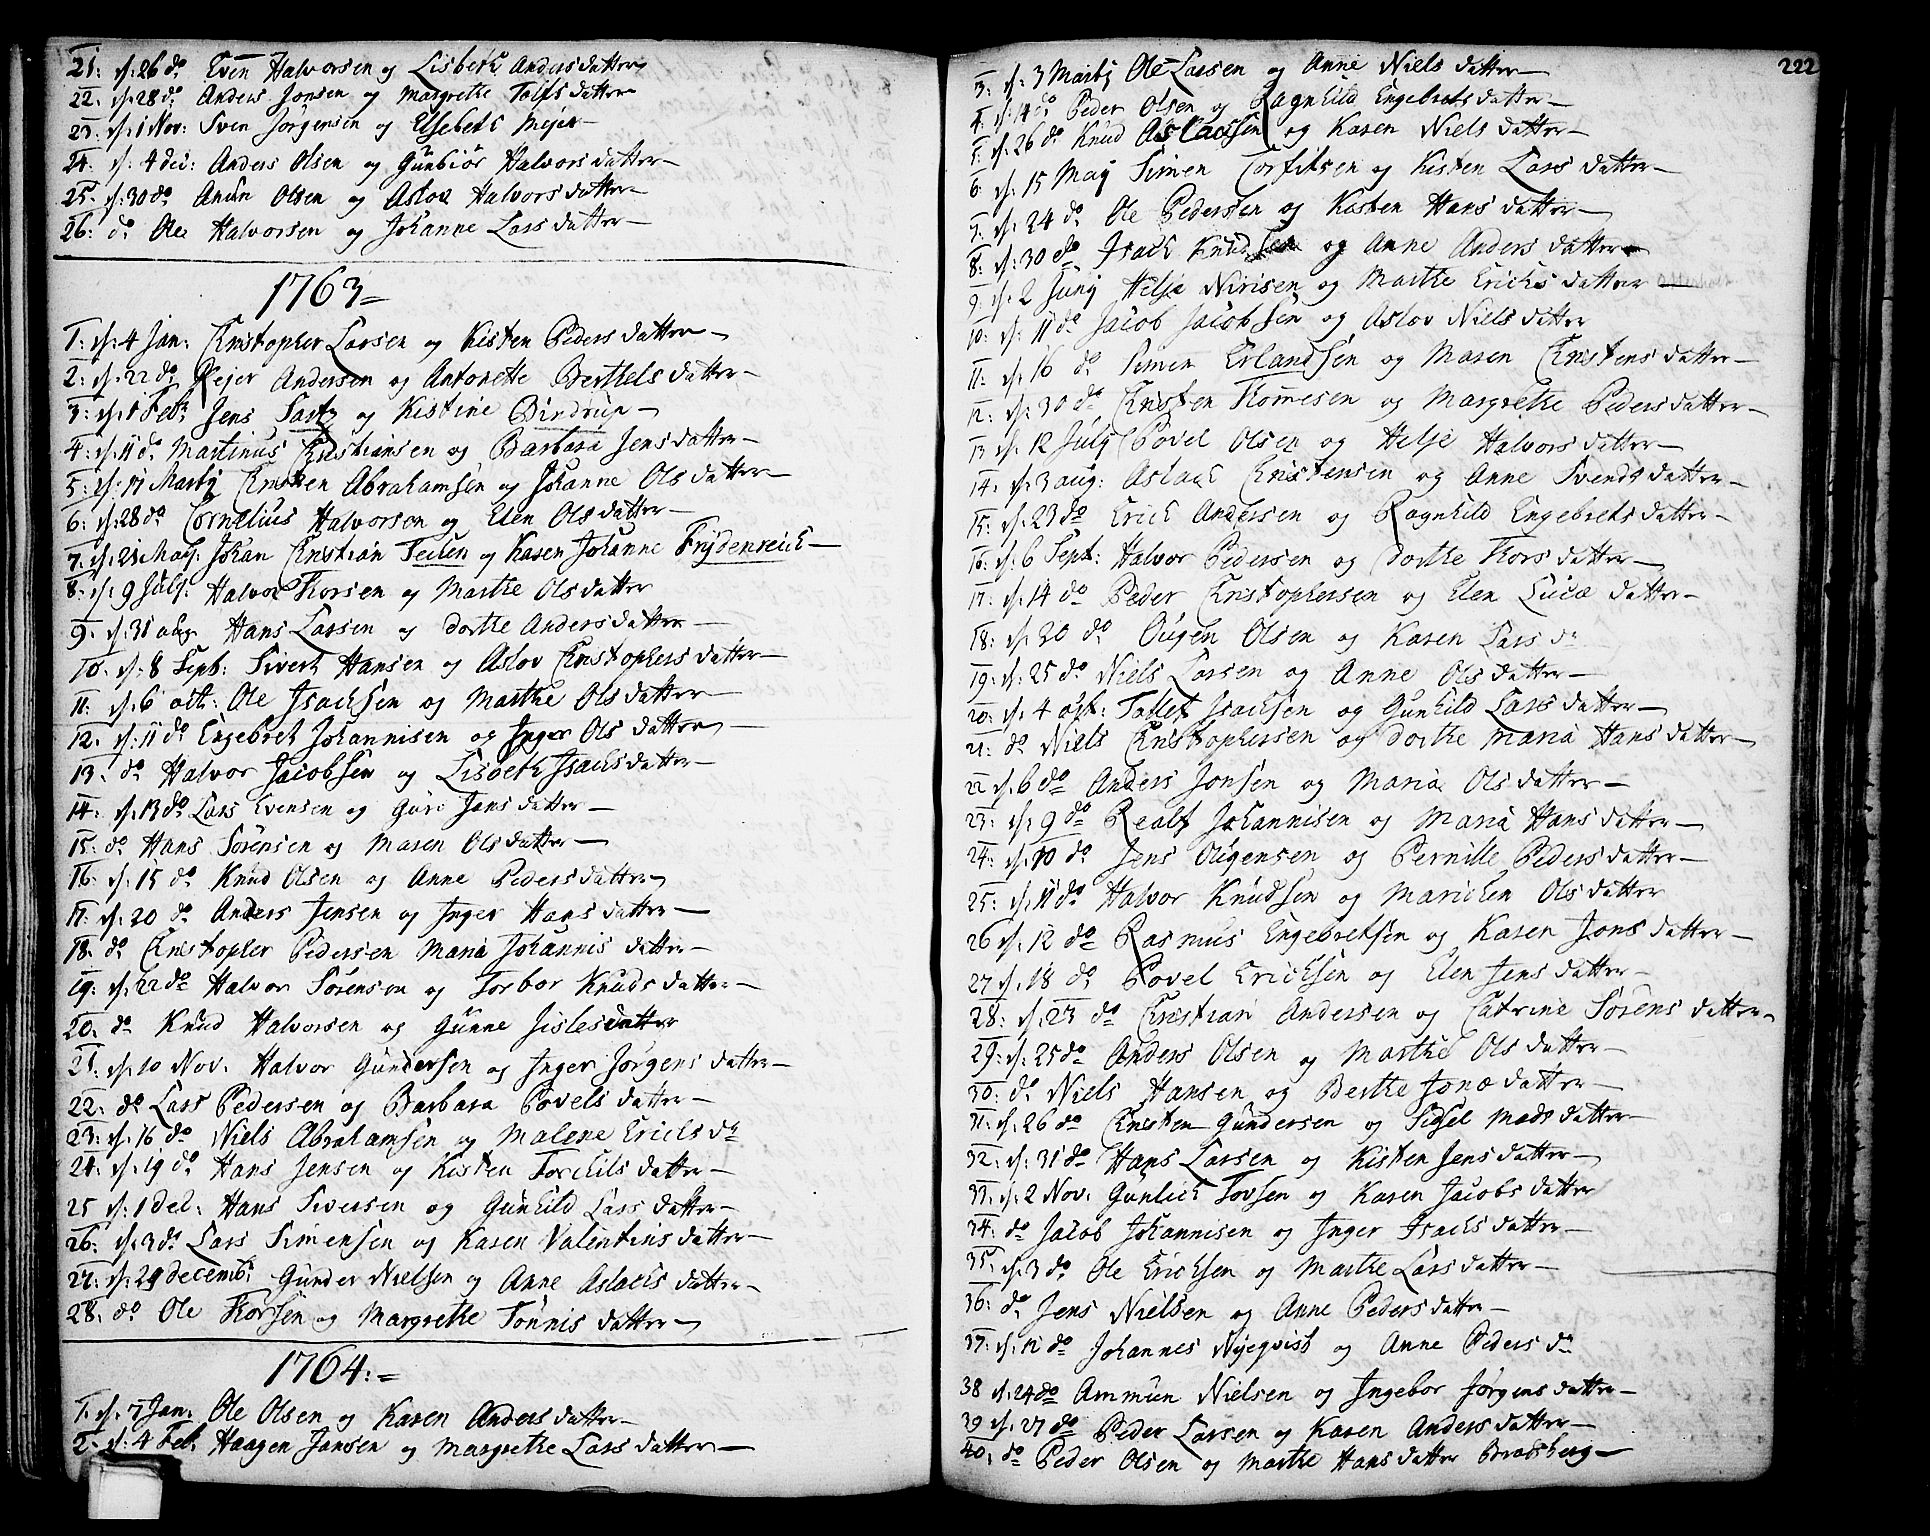 21: d: 26 do Even Halvorsen og Lisbeth Andersdatter
22: d: 28 do Anders Jonsen og Margrethe Tolfsdatter
23: d: 1 Nov: Sven Jørgensen og Elsebeth Mejer
24: d: 4 dec: Anders Olsen og Gunbiør Halvorsdatter
25: d: 30 do Amun Olsen og Aslov Halvorsdatter
26: do Ole Halvorsen og Johanne Larsdatter
1763
1: d: 4 Jan: Christopher Larsen og Kisten Pedersdatter
2: d: 22 do Rejer Andersen og Antonette Berthelsdatter
3: d: 1 Feb: Jens Sartz og Kistine Bindrup
4: d: 11 do Martinus Christiansen og Barbara Jensdatter
5: d: 17 Martij Christen Abrahamsen og Johanne Olsdatter
6: d: 28 do Cornelius Halvorsen og Elen Olsdatter
7: d: 21 Maij: Johan Christian Teilen og Karen Johanne Frydenreich
8: d: 9 Julij: Halvor Thorsen og Marthe Olsdatter
9: d: 31 aug Hans Larsen og Dorthe Andersdatter
10: d: 8 Sept: Sivert Hansen og Aslov Christophersdatter
11: d: 6 oct: Ole Isachsen og Marthe Olsdatter
12: d: 11 do Engebret Johannisen og Inger Olsdatter
13: do Halvor Jacobsen og Lisbeth Isachsdatter
14: d: 13 do Lars Evensen og Guro Jansdatter
15: do Hans Sørensen og Maren Olsdatter
16: d: 15 do Knud Olsen og Anne Pedersdatter
17: d: 20 do Anders Jensen og Inger Hansdatter
18: do Christopher Pedersen Maria Johannisdatter
19: d: 22 do Halvor Sørensen og Torbor Knudsdatter
20: do Knud Halvorsen og Gunne Jislesdatter
21: d: 10 Nov. Halvor Gundersen og Inger Jørgensdatter
22: do Lars Pedersen og Barbara Povelsdatter
23: d: 16 do Niels Abrahamsen og Malene Erichsdr
24: d: 19 do Hans Jensen og Kisten Torchilsdatter
25 d: 1 dec: Hans Siversen og Gunhild Larsdatter
26: d: 3 do Lars Simensen og Karen Valentinsdatter
27: d: 29 decemb: Gunder Nielsen og Anne Aslachsdatter
28: do Ole Thorsen og Margrethe Tønnisdatter
1764:
1: d: 7 Jan: Ole Olsen og Karen Andersdatter
2: d: 4 Feb: Haagen Jansen og Margrethe Larsdatter
222
3: d: 3 Martij Ole Larsen og Anne Nielsdatter
4: d: 14 do Peder Olsen og Ragnhild Engebretsdatter
5: d: 26 do Knud Aslachsen og Karen Nielsdatter
6: d: 15 Maij Simen Torfinsen og Kisten Larsdatter
7: d: 24 do Ole Pedersen og Kisten Hansdatter
8: d: 30 do Isach Knudsen og Anne Andersdatter
9: d: 2 Junij Helje Nirisen og Marthe Erichsdatter
10: d: 11 do Jacob Jacobsen og Aslov Nielsdatter
11: d: 16 do Simen Erlandsen og Maren Christensdatter
12: d: 30 do Christen Thomesen og Margrethe Pedersdatter
13 d: 12 Julij Povel Olsen og Helje Halvorsdatter
14: d: 3 aug: Aslach Christensen og Anne Svendsdatter
15: d: 23 do Erich Andersen og Ragnhild Engebretsdatter
16: d: 6 Sept: Halvor Pedersen og Dorthe Thorsdatter
17: d: 14 do Peder Christophersen og Elen Lucæ datter
18: d: 20 do Ougen Olsen og Karen Lars dr
19: d: 25 do Niels Larsen og Anne Olsdatter
20: d: 4 oct: Tollef Isachsen og Gunhild Larsdatter
21: do Niels Christophersen og Dorthe Maria Hansdatter
22 d: 6 do Anders Jonsen og Maria Olsdatter
23: d: 9 do Realf Johannisen og Maria Hansdatter
24: d: 10 do Jens Ougensen og Pernille Pedersdatter
25: d: 11 do Halvor Knudsen og Marichen Olsdatter
26 d: 12 do Rasmus Engebretsen og Karen Jonsdatter
27 d: 18 do Povel Erichsen og Elen Jensdatter
28: d: 23 do Christian Andersen og Catrine Sørensdatter
29: d: 25 do Anders Olsen og Marthe Olsdatter
30: do Niels Hansen og Berthe Jonædatter
31: d: 26 do Christen Gundersen og Sigel Madsdatter
32: d: 31 do Hans Larsen og Kisten Jensdatter
33: d: 2 Nov: Gunlich Tovsen og Karen Jacobsdatter
34: do Jacob Johannisen og Inger Isachsdatter
35: d: 3 do Ole Erichsen og Marthe Larsdatter
36: do Jens Nielsen og Anne Pedersdatter
37: d: 12 do Johannes Nyeqvist og Anne Peders dr
38 d: 24 do Ammun Nielsen og Ingebor Jørgensdatter
39 d: 27 do Peder Larsen og Karen Andersdatter
40: do Peder Olsen og Marthe Hansdatter Bratsberg